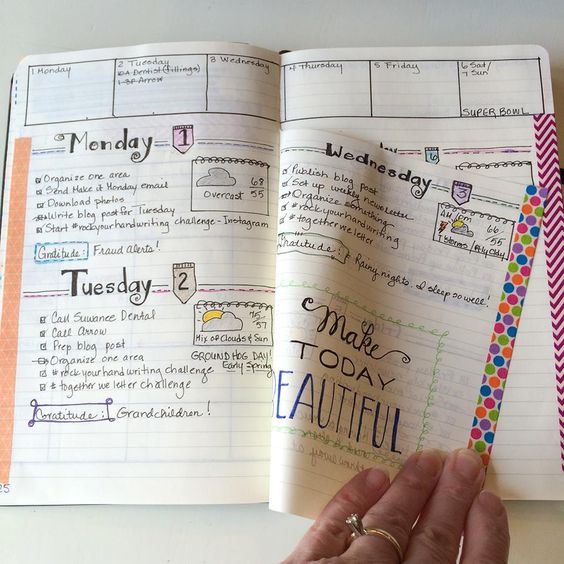 1 Monday
2 Tuesday
10A Dentist (fillings)
3 Wednesday
4 Thursday
5 Friday
6 Sat/
7 Sun
SUPER BOWL
Monday 1
Organize one area
Send Make it Monday email
Download photos
Write blog post for Tuesday
Start #rockyourhandwriting challenge - Instagram
Overcast
68
55
Gratitude: Fraud Alerts!
Tuesday 2
Call Suwanee Dental
Call Arrow
Prep blog post
Organize one area
#rockyourhandwriting challenge
#together we letter challenge
75
57
Mix of Clouds & Sun
GROUND HOG DAY!
Early Spring
Gratitude: Grandchildren!
25
Wednesday
Publish blog post
Set up weekly newsletter
Organize something
#rockyourhandwriting
#together we letter
66
55
Gratitude: Rainy nights I sleep so well!
Make
TODAY
BEAUTIFUL
6